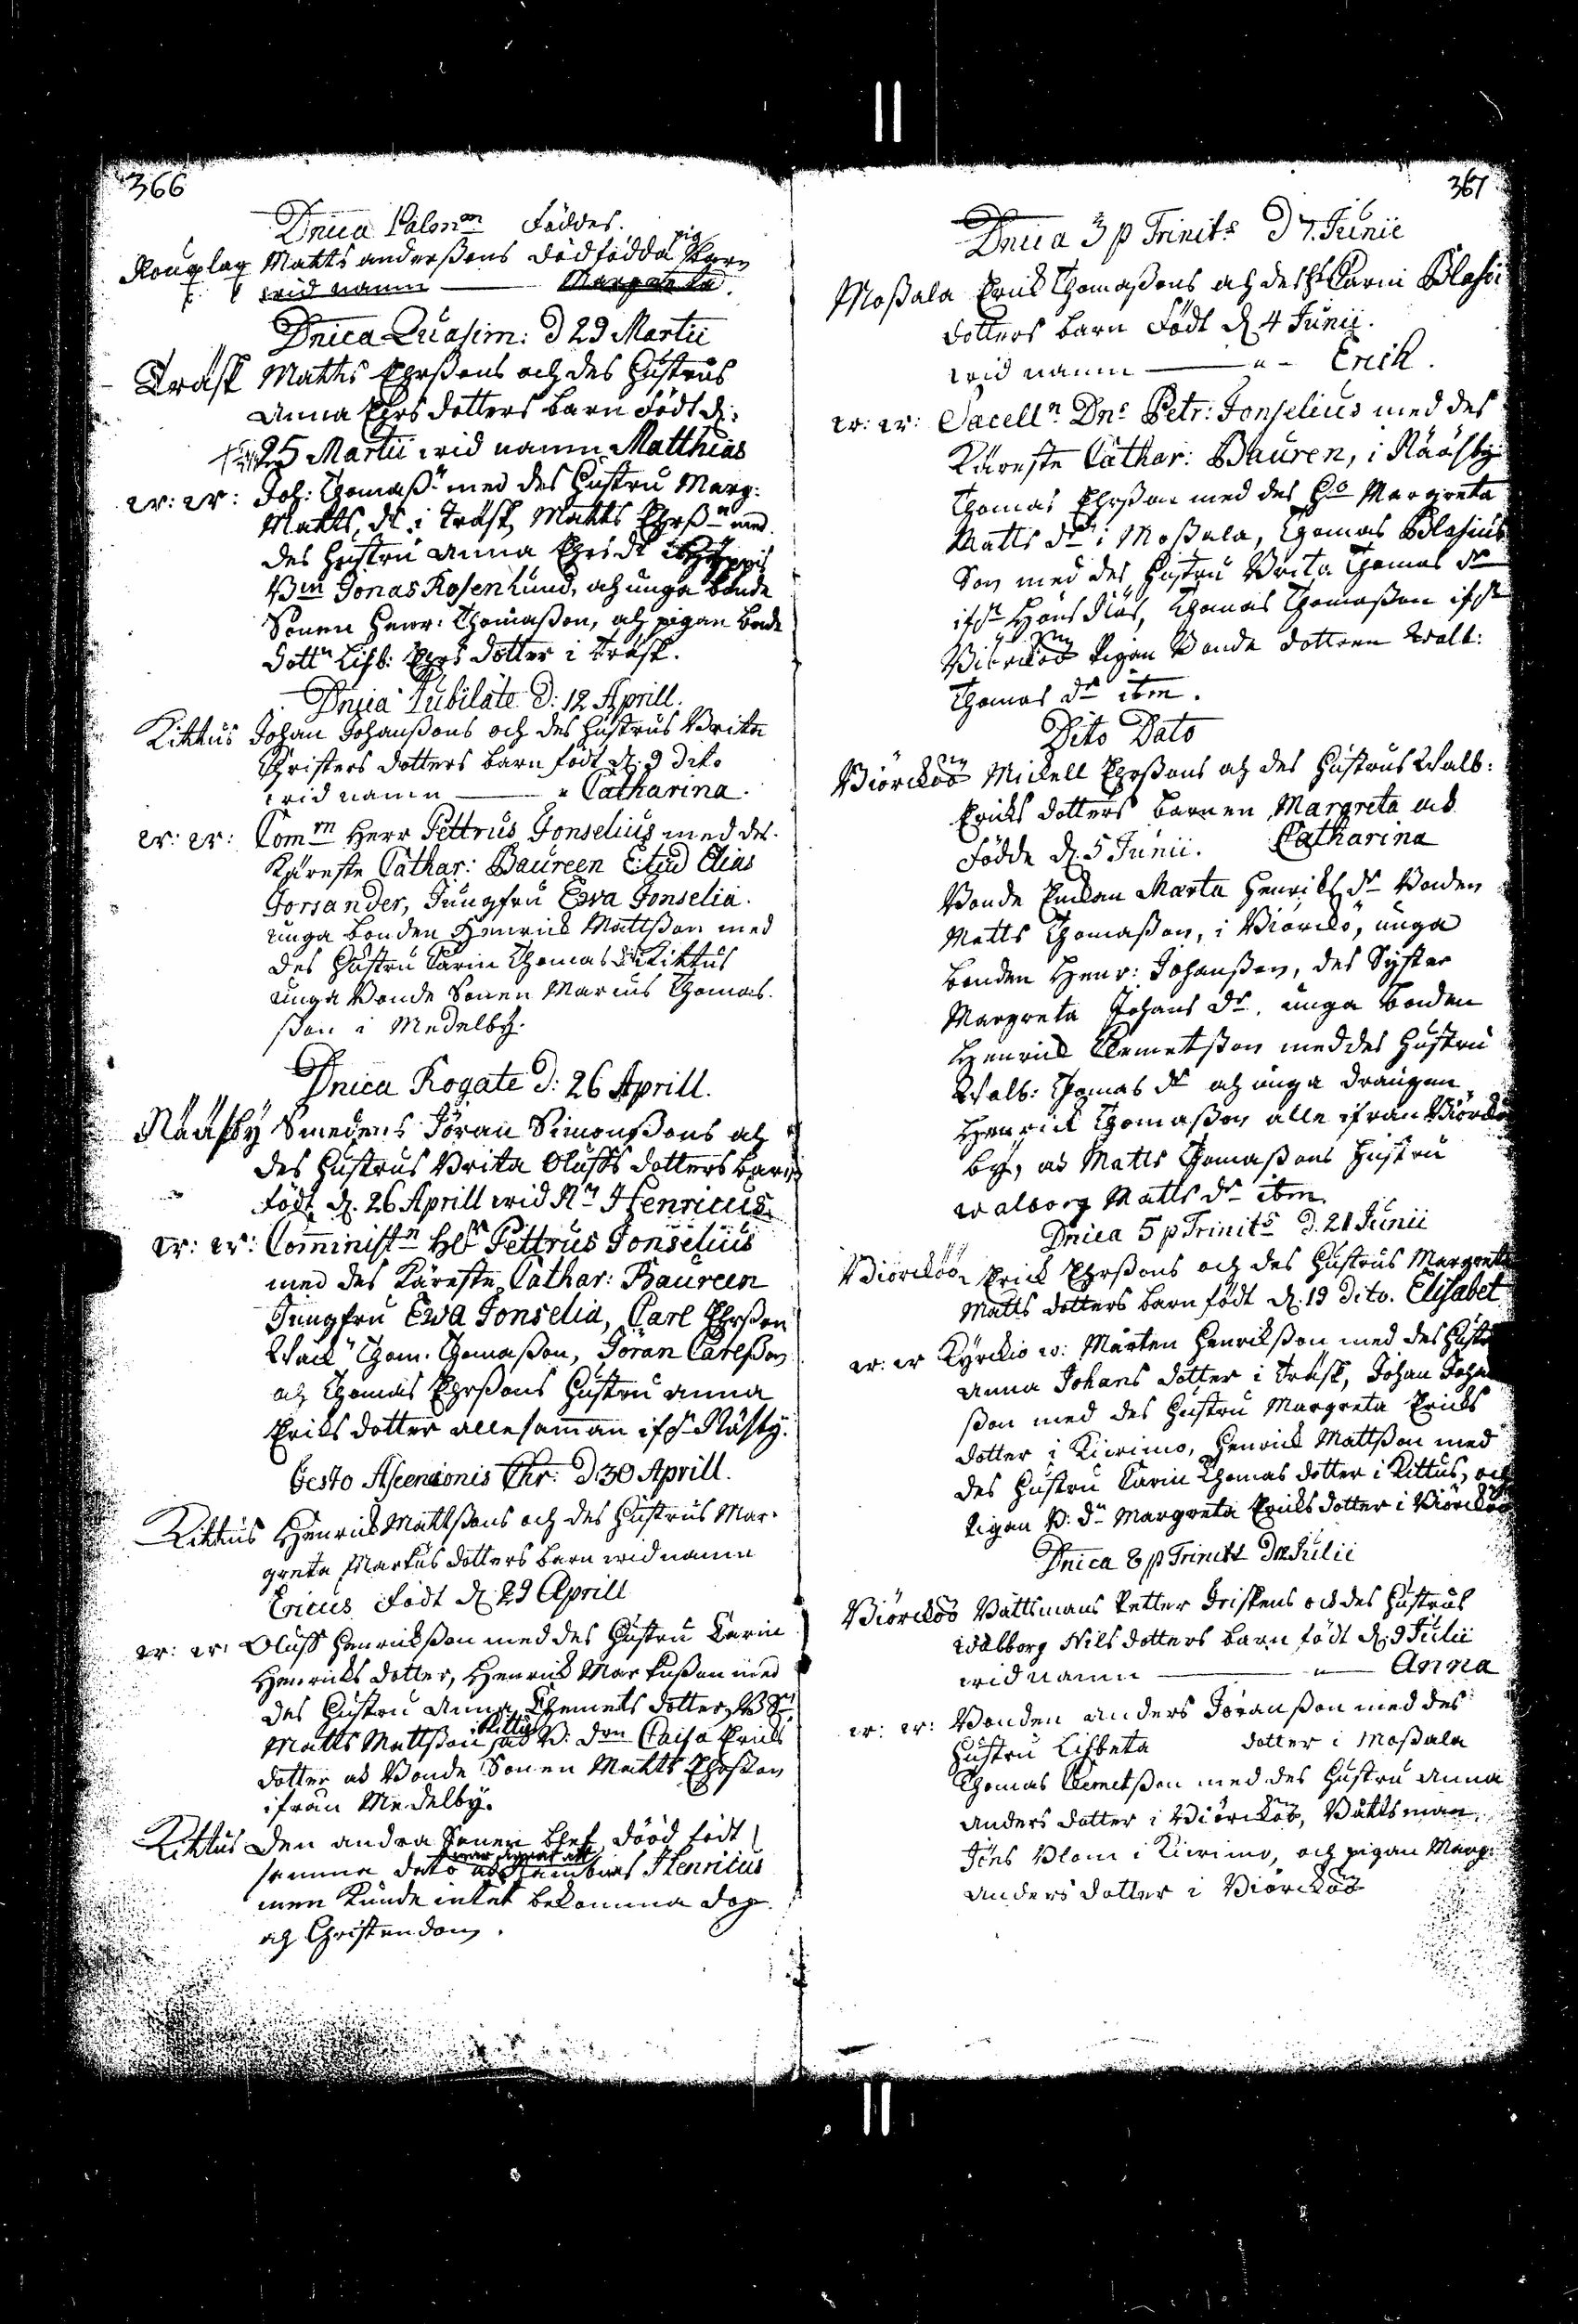 366
Dnica Palm Föddes.
Rouglax Matts anderßons dödfödda pig barn
wid namn — Margareta.
Dnica Quasim: d 29 Martii
Träsk Matts Ehrßons och des Hustrus
Anna Ehrs dotters barn Födt d:
25 Martii wid namn Matthias
w: w: Joh: Thomaß med des Hustru Marg:
Matts dr i Träsk, Matts Ehrßn med
des Hustru Anna Ehrs dr
Bm Jonas Rosenlund, och unga bonde
Sonen Henr: Thomaßon, och pigan bonde
dottn Lisb: Ehrs dotter i Träsk.
Dnica Jubilate d: 12 Aprill.
Kittus Johan Johanßons och des Hustrus Brita
Christers dotters barn födt d. 9 dito
wid namn — " Catharina.
w: w: Comm Herr Pettrus Jonselius med des
Käreste Cathar: Baureen Stud Elias
Forsander, Jungfru Ewa Jonselia.
unga bonden Henrick Mattßon med
des Hustru Karin Thomas dr Kittus
unga Bonde Sonen Marcus Thomas
ßon i Medelby.
Dnica Rogate d: 26 Aprill.
Nääsby Smedens Jöran Simonßons och
des Hustrus Brita Oluffs dotters barn
födt d. 26 Aprill wid Nn Henricus
w: w: Comministn Hr Pettrus Jonselius
med des Käreste Cathar: Baureen
Jungfru Ewa Jonselia, Carl Ehrßon
Wack Thom. Thomaßon, Jöran Carlßon
och Thomas Ehrßons Hustru Anna
Eriks dotter allesamman ifr Näsby.
Festo Ascensionis Chr: d 30 Aprill.
Kittus Henrick Mattßons och des Hustrus Mar-
greta Markus dotters barn wid namn
Ericus Födt d. 29 Aprill
w: w: Oluff Henrickßon med des Hustru Karin
Henricks dotter, Henrick Markußon med
des Hustru Anna Clemets dotter, B Sn
Matts Mattßon i Kittus och B: dn Caisa Ericks
dotter och Bonde Sonen Matts Ehrßon
ifrån Medelby.
Kittus Den andra Sonen blef dööd födt
samma dato Henricus
men kunde intet bekomma dop
och Christendom.
367
Dnica 3 p Trinits d 7. Junii
Moßala Erick Thomaßons och des H Karin Blasii
dotters barn Födt d. 4 Junii.
wid namn — " - Erich.
w: w: Sacelln Dns Petr: Jonselius med des
Käreste Cathar: Bauren, i Nääsby
Thomas Ehrßon med des Ho Margreta
Matts dr i Moßala, Thomas Blasius
Son med des Hustru Brita Thomas dr
ifr Hönsnäs, Thomas Thomaßon ifr
Biörcköö Pigan Bonde dottren Walb:
Thomas dr ibm.
Dito Dato
Biörcköö Mickell Ehrßons och des Hustrus Walb:
Ericks dotters barnen Margreta och
Födde d. 5 Junii. Catharina
Bonde Enckan Marta Henricks dr Bonden
Matts Thomaßon, i Biörckö, unga
bonden Henr: Johanßon, des Syster
Margreta Johans dr. unga bonden
Henrick Clemetßon med des Hustru
Walb: Thomas dr och unga drängen
Henrick Thomaßon alle ifrån Biörckö
by, och Matts Thomaßons Hustru
walborg Matts dr ibm.
Dnica 5 p Trinits d. 21 Junii
Biörcköö Erick Ehrßons och des Hustrus Margreta
Matts dotters barn födt d. 19 dito. Elisabet
w: w Kyrckio w: Mårten Henrickßon med des Hustru
Anna Johans dotter i Träsk, Johan Johan
ßon med des Hustru Margreta Ericks
dotter i Kiwimo, Henrick Mattßon med
des Hustru Karin Thomas dotter i Kittus, och
Pigan B: dn Margreta Ericks dotter i Biörcköö
Dnica 8 p Trinit d 12 Julii
Biörcköö Båttsmans Petter Friskens och des Hustrus
walborg Nils dotters barn födt d. 9 Julii
wid namn — " — Anna
w: w: Bonden Anders Jöranßon med des
Hustru Lisbeta dotter i Moßala
Thomas Clemetßon med des Hustru Anna
Anders dotter i Biörcköö, Båttsman
Jöns Blom i Kiwimo, och pigan Marg:
Anders dotter i Biörcköö